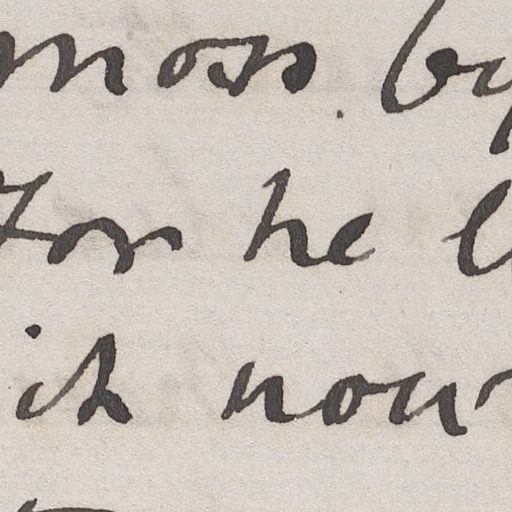 moss by
for he l
it now